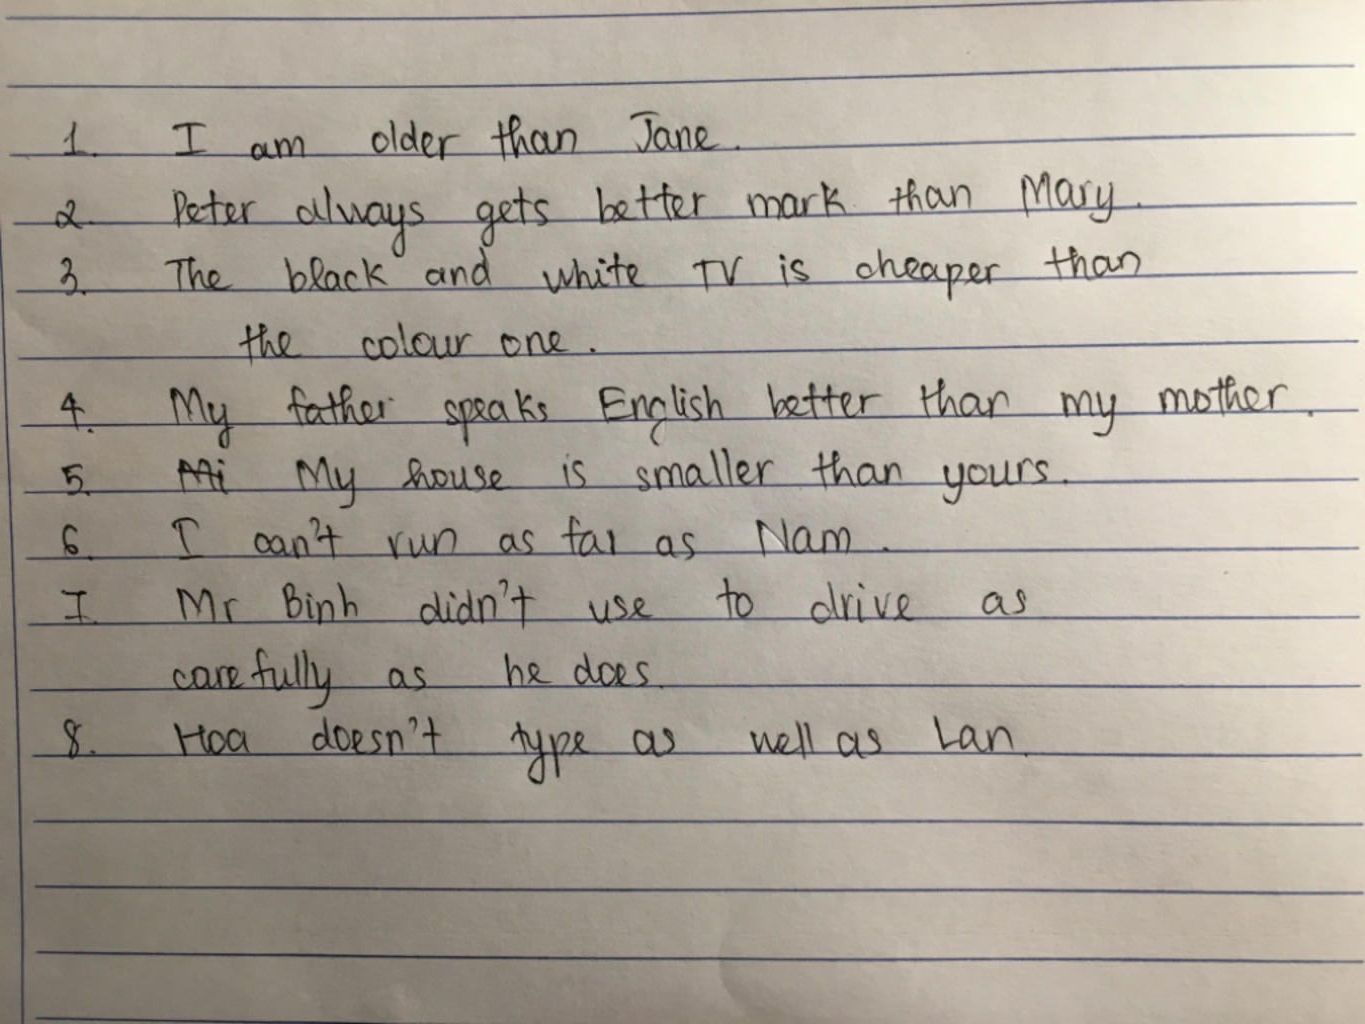 1. I am older than Jane.
2. Peter always gets better mark than Mary.
3. The black and white TV is cheaper than
the colour one.
4. My father speaks English better than my mother.
5. Mi My house is smaller than yours.
6. I can't run as far as Nam.
7. Mr Binh didn't use to drive as
carefully as he does.
8. Hoa doesn't type as well as Lan.